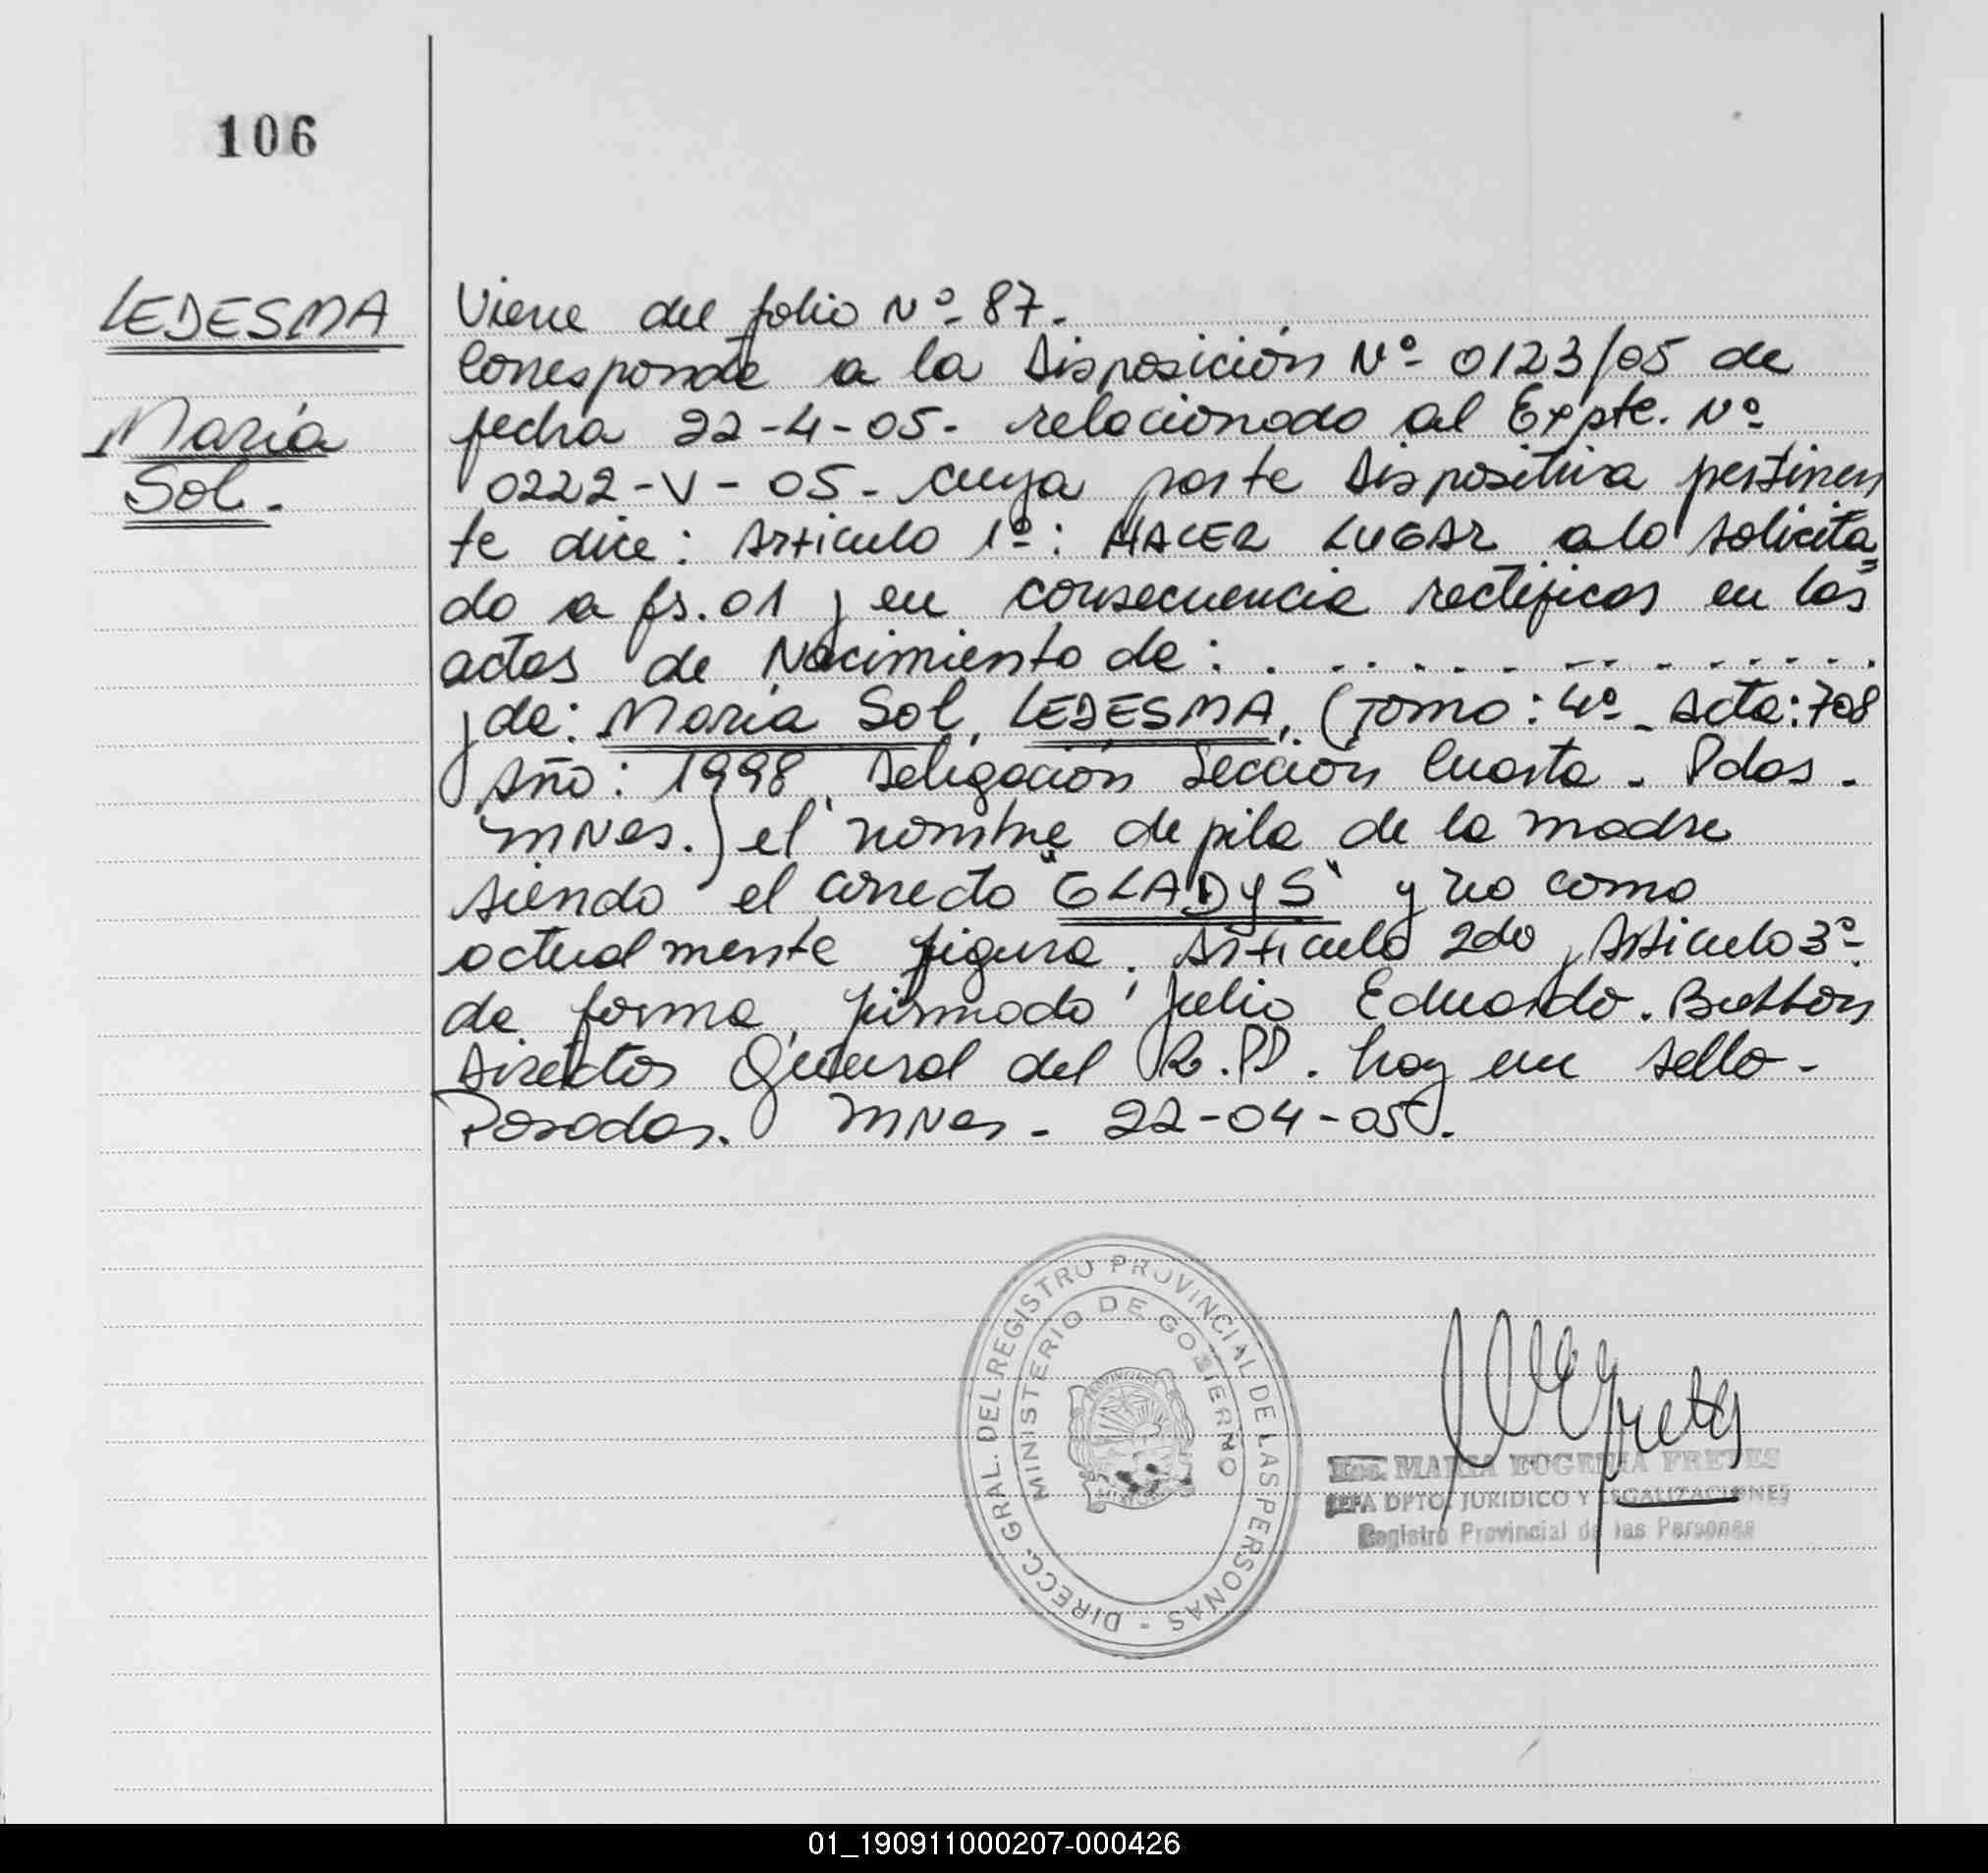 106
LEDESMA
María
Sol.
Viene del folio Nº 87.
Corresponde a la Disposición Nº 0123/05 de
fecha 22-4-05- relacionado al Expte. Nº
0222-V-05- cuya parte Dispositiva pertinen
te dice: Artículo 1º: HACER LUGAR a lo solicita=
do a fs. 01 y en consecuencia rectificar en las
actas de Nacimiento de: . . . . . . . . . . . . . . .
y de: María Sol, LEDESMA, (Tomo: 4º - Acta: 708
Año: 1998, Delegación Sección Cuarta - Pdas.
MNes.) el nombre de pila de la madre
siendo el correcto "GLADYS" y no como
actualmente figura. Artículo 2do y Artículo 3º-
de forma, firmado Julio Eduardo. Button
Director General del R.PP. hay un sello-
Posadas. MNes- 22-04-05.
DIRECC. GRAL. DEL REGISTRO PROVINCIAL DE LAS PERSONAS -
MINISTERIO DE GOBIERNO
MARIA EUGENIA FRETES
JEFA DPTO. JURIDICO Y LEGALIZACIONES
Registro Provincial de las Personas
01_190911000207-000426